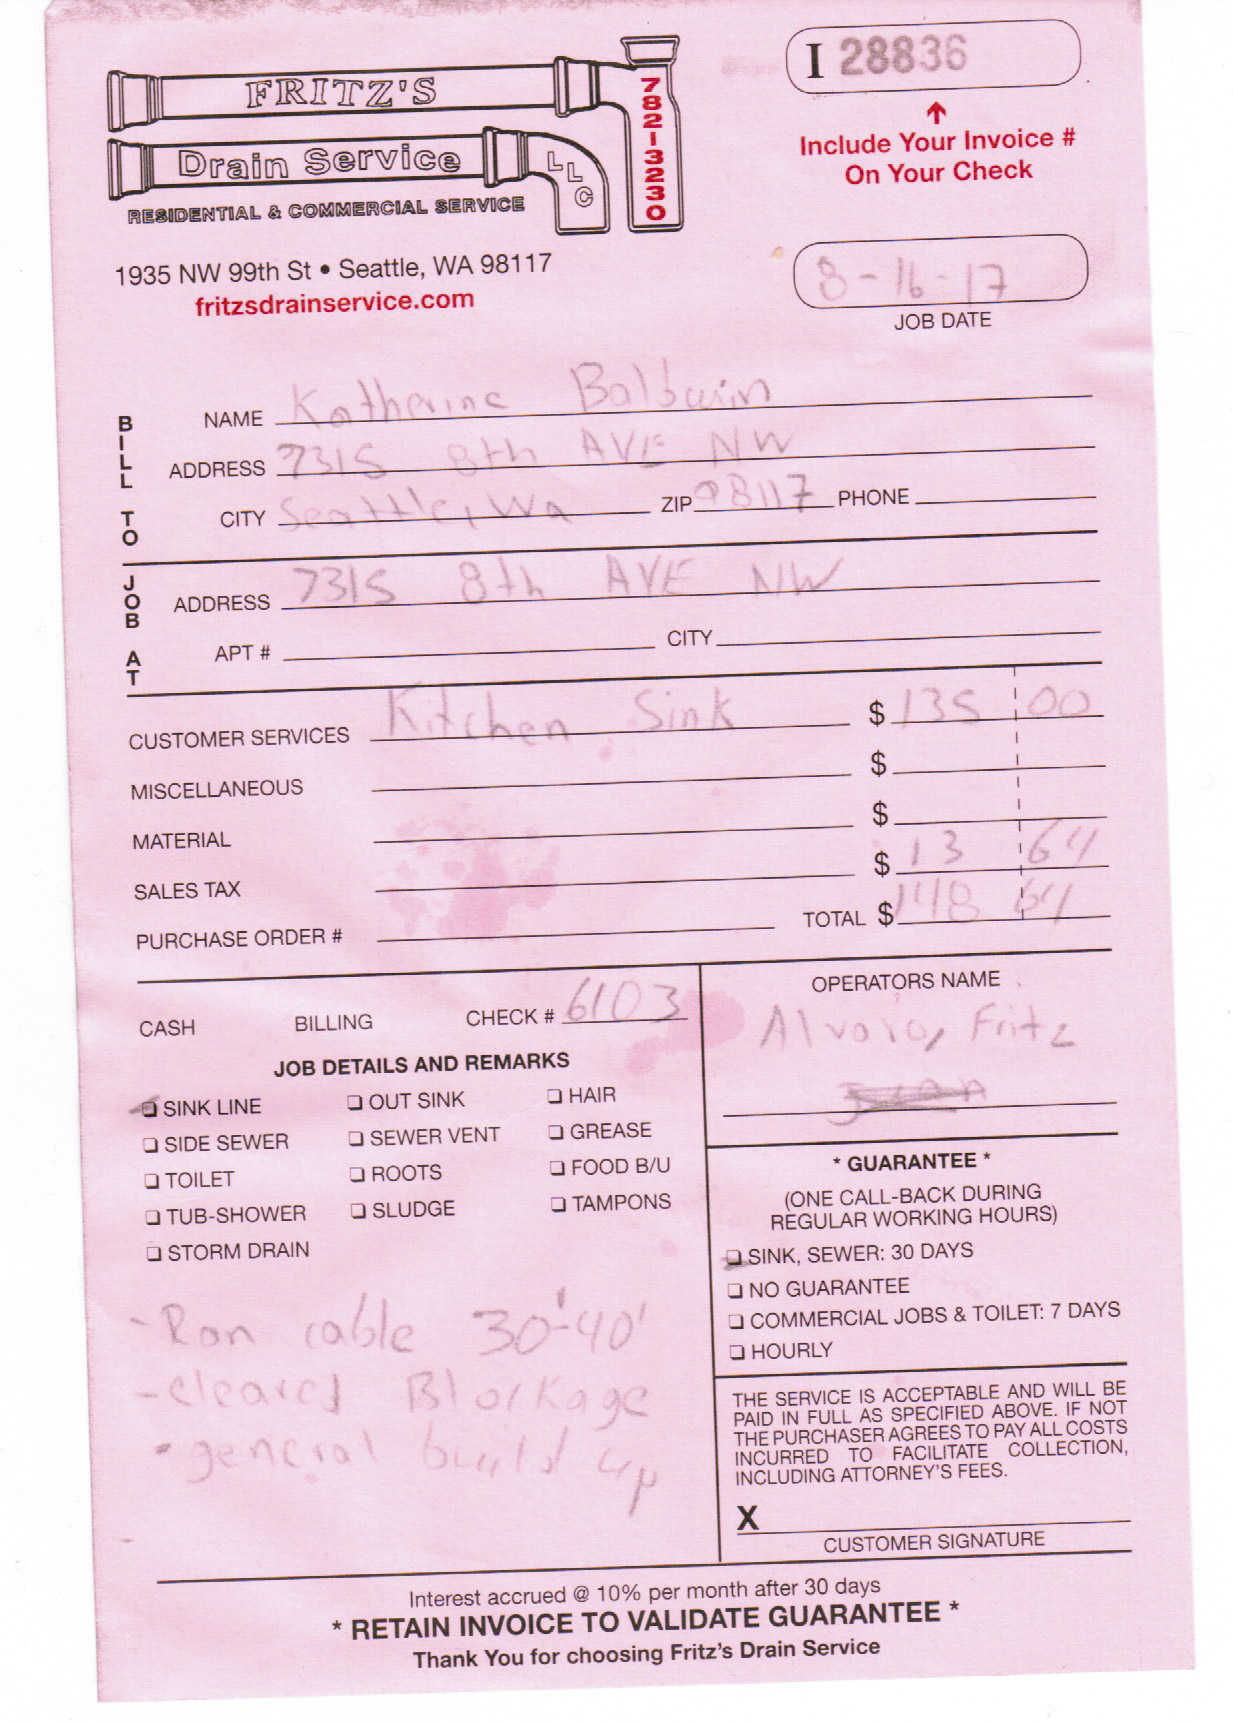 FRITZ'S
Drain Service LLC
78213230
RESIDENTIAL & COMMERCIAL SERVICE
1935 NW 99th St • Seattle, WA 98117
fritzsdrainservice.com
I 28836
Include Your Invoice #
On Your Check
8-16-17
JOB DATE
BILL TO
NAME Katherine Baldwin
ADDRESS 7315 8th AVE NW
CITY Seattle, Wa ZIP 98117 PHONE
JOB AT
ADDRESS 7315 8th AVE NW
APT # CITY
CUSTOMER SERVICES Kitchen Sink $ 135 00
MISCELLANEOUS $
MATERIAL $
SALES TAX $ 13 64
PURCHASE ORDER # TOTAL $ 148 64
CASH BILLING CHECK # 6103
JOB DETAILS AND REMARKS
SINK LINE OUT SINK HAIR
SIDE SEWER SEWER VENT GREASE
TOILET ROOTS FOOD B/U
TUB-SHOWER SLUDGE TAMPONS
STORM DRAIN
- Ran cable 30'-40'
- cleared Blockage
- general build up
OPERATORS NAME
Alvaro, Fritz
* GUARANTEE *
(ONE CALL-BACK DURING
REGULAR WORKING HOURS)
SINK, SEWER: 30 DAYS
NO GUARANTEE
COMMERCIAL JOBS & TOILET: 7 DAYS
HOURLY
THE SERVICE IS ACCEPTABLE AND WILL BE
PAID IN FULL AS SPECIFIED ABOVE. IF NOT
THE PURCHASER AGREES TO PAY ALL COSTS
INCURRED TO FACILITATE COLLECTION,
INCLUDING ATTORNEY'S FEES.
X
CUSTOMER SIGNATURE
Interest accrued @ 10% per month after 30 days
* RETAIN INVOICE TO VALIDATE GUARANTEE *
Thank You for choosing Fritz's Drain Service